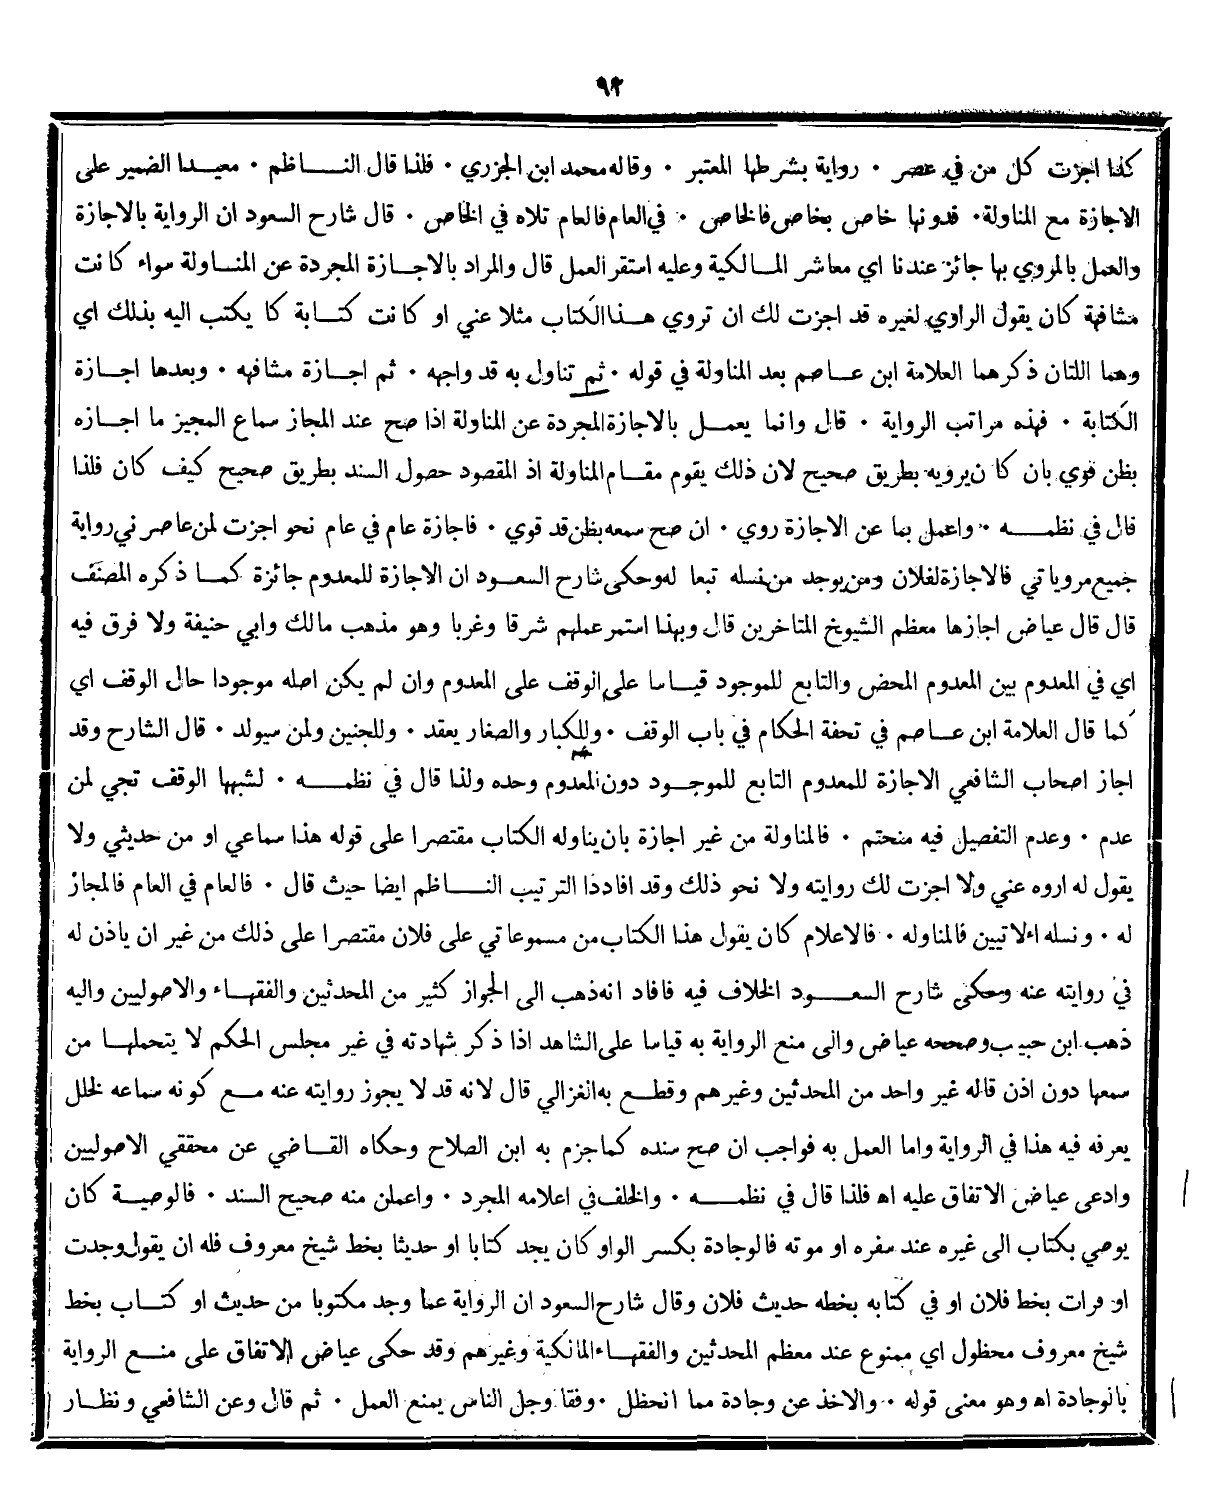 ٩٢
كلنا اجزت كل من في عصر ٠ رواية بشرطها المعتبر ٠ وقاله محمد ابن الجزري ٠ فلذا قال النـــاظم ٠ معيــدا الضمير على
الاجازة مع المناولة٠ فدونها خاص بخاص فالخاص ٠ في العام فالعام تلاه في الخاص ٠ قال شارح السعود ان الرواية بالاجازة
والعمل بالمروي بها جائز عندنا اي معاشر المــالكية وعليه استقر العمل قال والمراد بالاجــازة المجردة عن المنــاولة سواء كانت
مشافهة كان يقول الراوي لغيره قد اجزت لك ان تروي هــذا الكتاب مثلا عني او كانت كتــابة كا يكتب اليه بذلك اي
وهما اللتان ذكرهما العلامة ابن عــاصم بعد المناولة في قوله ٠ ثم تناول به قد واجهه ٠ ثم اجــازة مشافهه ٠ وبعدها اجــازة
الكتابة ٠ فهذه مراتب الرواية ٠ قال وانما يعمــل بالاجازة المجردة عن المناولة اذا صح عند المجاز سماع المجيز ما اجــازه
بظن قوي بان كان يرويه بطريق صحيح لان ذلك يقوم مقــام المناولة اذ المقصود حصول السند بطريق صحيح كيف كان فلذا
قال في نظمــــه ٠ واعمل بما عن الاجازة روي ٠ ان صح سمعه بظن قد قوي ٠ فاجازة عام في عام نحو اجزت لمن عاصرني رواية
جميع مروياتي فالاجازة لفلان ومن يوجد من نسله تبعا له وحكى شارح السعــود ان الاجازة للمعدوم جائزة كمــا ذكره المصنف
قال قال عياض اجازها معظم الشيوخ المتاخرين قال وبهذا استمر عملهم شرقا وغربا وهو مذهب مالك وابي حنيفة ولا فرق فيه
اي في المعدوم بين المعدوم المحض والتابع للموجود قيــاسا على الوقف على المعدوم وان لم يكن اصله موجودا حال الوقف اي
كما قال العلامة ابن عــاصم في تحفة الحكام في باب الوقف ٠ وللكبار والصغار يعقد ٠ وللجنين ولمن سيولد ٠ قال الشارح وقد
اجاز اصحاب الشافعي الاجازة للمعدوم التابع للموجــود دون المعدوم وحده ولذا قال في نظمــــه ٠ لشبهها الوقف تجي لمن
عدم ٠ وعدم التفصيل فيه منحتم ٠ فالمناولة من غير اجازة بان يناوله الكتاب مقتصرا على قوله هذا سماعي او من حديثي ولا
يقول له اروه عني ولا اجزت لك روايته ولا نحو ذلك وقد افاد ذا الترتيب النـــاظم ايضا حيث قال ٠ فالعام في العام فالمجاز
له ٠ ونسله اءلاتيين فالمناوله ٠ فالاعلام كان يقول هذا الكتاب من مسموعاتي على فلان مقتصرا على ذلك من غير ان ياذن له
في روايته عنه وحكى شارح السعـــود الخلاف فيه فافاد انه ذهب الى الجواز كثير من المحدثين والفقهــاء والاصوليين واليه
ذهب ابن حبيب وصححه عياض والى منع الرواية به قياسا على الشاهد اذا ذكر شهادته في غير مجلس الحكم لا يتحملهــا من
سمعها دون اذن قاله غير واحد من المحدثين وغيرهم وقطــع به الغزالي قال لانه قد لا يجوز روايته عنه مــع كونه سماعه لخلل
يعرفه فيه هذا في الرواية واما العمل به فواجب ان صح سنده كما جزم به ابن الصلاح وحكاه القــاضي عن محققي الاصوليين
وادعى عياض الاتفاق عليه اه فلذا قال في نظمــــه ٠ والخلف في اعلامه المجرد ٠ واعملن منه صحيح السند ٠ فالوصيــة كان
يوصي بكتاب الى غيره عند سفره او موته فالوجادة بكسر الواو كان يجد كتابا او حديثا بخط شيخ معروف فله ان يقول وجدت
او قرات بخط فلان او في كتابه بخطه حديث فلان وقال شارح السعود ان الرواية عما وجد مكتوبا من حديث او كتــاب بخط
شيخ معروف محظول اي ممنوع عند معظم المحدثين والفقهــاء المالكية وغيرهم وقد حكى عياض الاتفاق على منــع الرواية
بالوجادة اه وهو معنى قوله ٠ والاخذ عن وجادة مما انحظل ٠ وفقا وجل الناس يمنع العمل ٠ ثم قال وعن الشافعي ونظــار